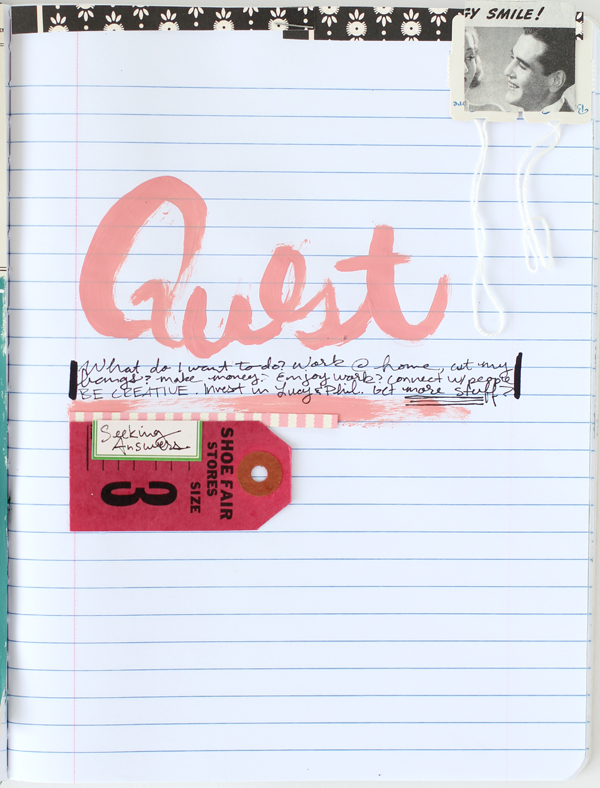 SMILE!
Quest
What do I want to do? Work @ home, cut my
bangs? make money? Enjoy work? Connect w/ people
BE CREATIVE. Invest in Lucy & Phil. Get more stuff?
Seeking
Answers.
SHOE FAIR
STORES
SIZE
3